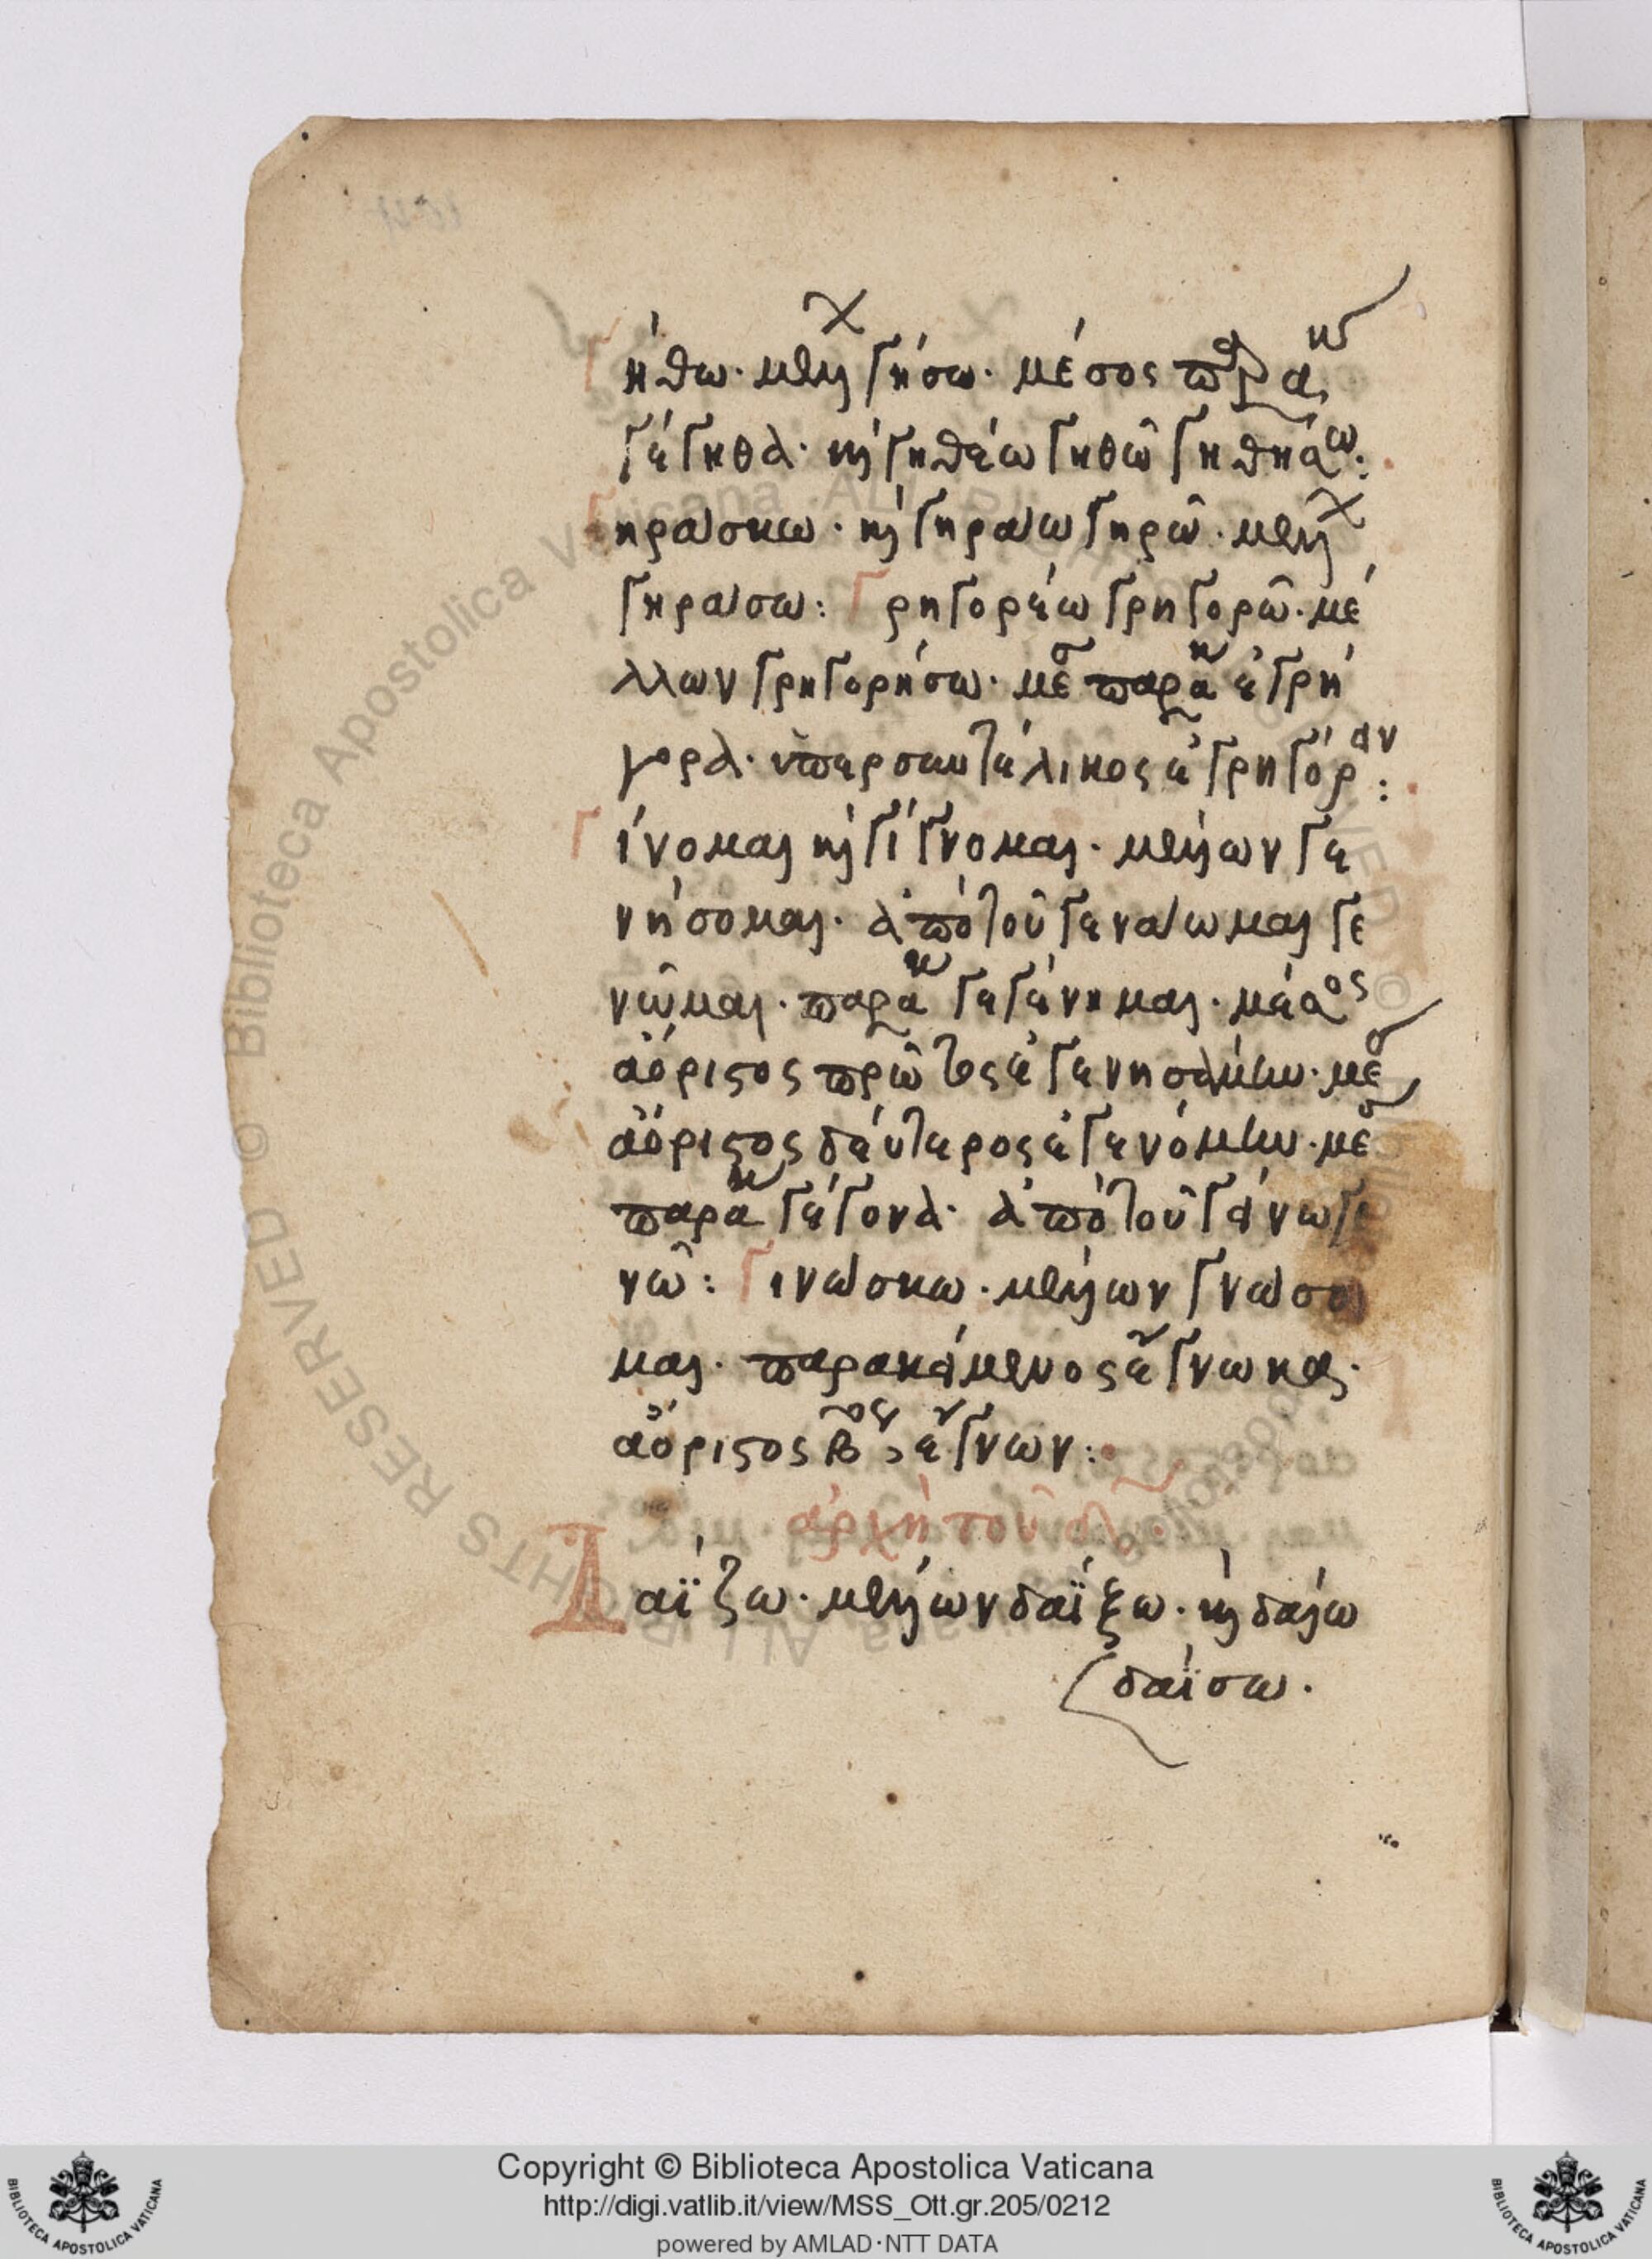 γήθω· μέλλ γήσω· μέσος παρακ
γέγηθα· καὶ γηθέω γηθῶ γηθήσω·
γηράσκω· καὶ γηράω γηρῶ· μέλλ
γηράσω: γρηγορέω γρηγορῶ· μέ
λλων γρηγορήσω· μέσ παρακ ἐγρή
γορα· ὑπερσυντέλικος ἐγρηγόρειν:
γίνομαι καὶ γίγνομαι· μέλλων γε
νήσομαι· ἀπὸ τοῦ γενέωμαι γε
νῶμαι· παρακ γεγένημαι· μέσος
ἀόριστος πρῶτος ἐγενησάμην· μέσ
ἀόριστος δεύτερος ἐγενόμην· μέσ
παρακ γέγονα· ἀπὸ τοῦ γείνω γε
νῶ: γινώσκω· μέλλων γνώσο
μαι· παρακείμενος ἔγνωκα·
ἀόριστος βος ἔγνων:
ἀρχὴ τοῦ δλ
Δαΐζω· μέλλων δαΐξω· καὶ δαίω
δαίσω·
Copyright © Biblioteca Apostolica Vaticana
http://digi.vatlib.it/view/MSS_Ott.gr.205/0212
powered by AMLAD·NTT DATA
BIBLIOTECA APOSTOLICA VATICANA
BIBLIOTECA APOSTOLICA VATICANA